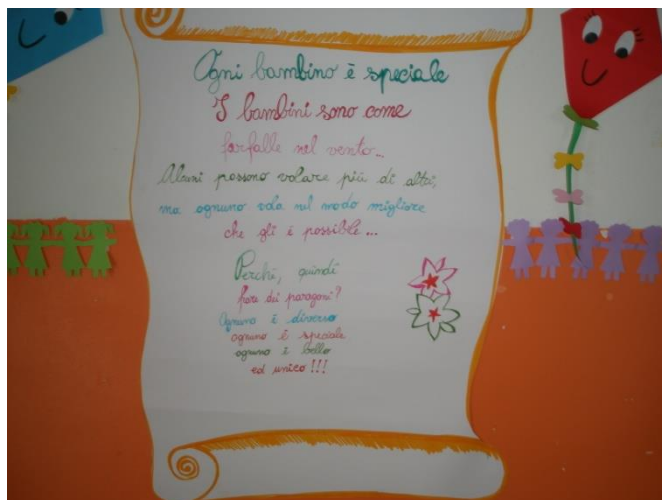 Ogni bambino è speciale
I bambini sono come
farfalle nel vento...
Alcuni possono volare più di altri,
ma ognuno vola nel modo migliore
che gli è possibile...
Perchè, quindi
fare dei paragoni?
Ognuno è diverso
ognuno è speciale
ognuno è bello
ed unico!!!